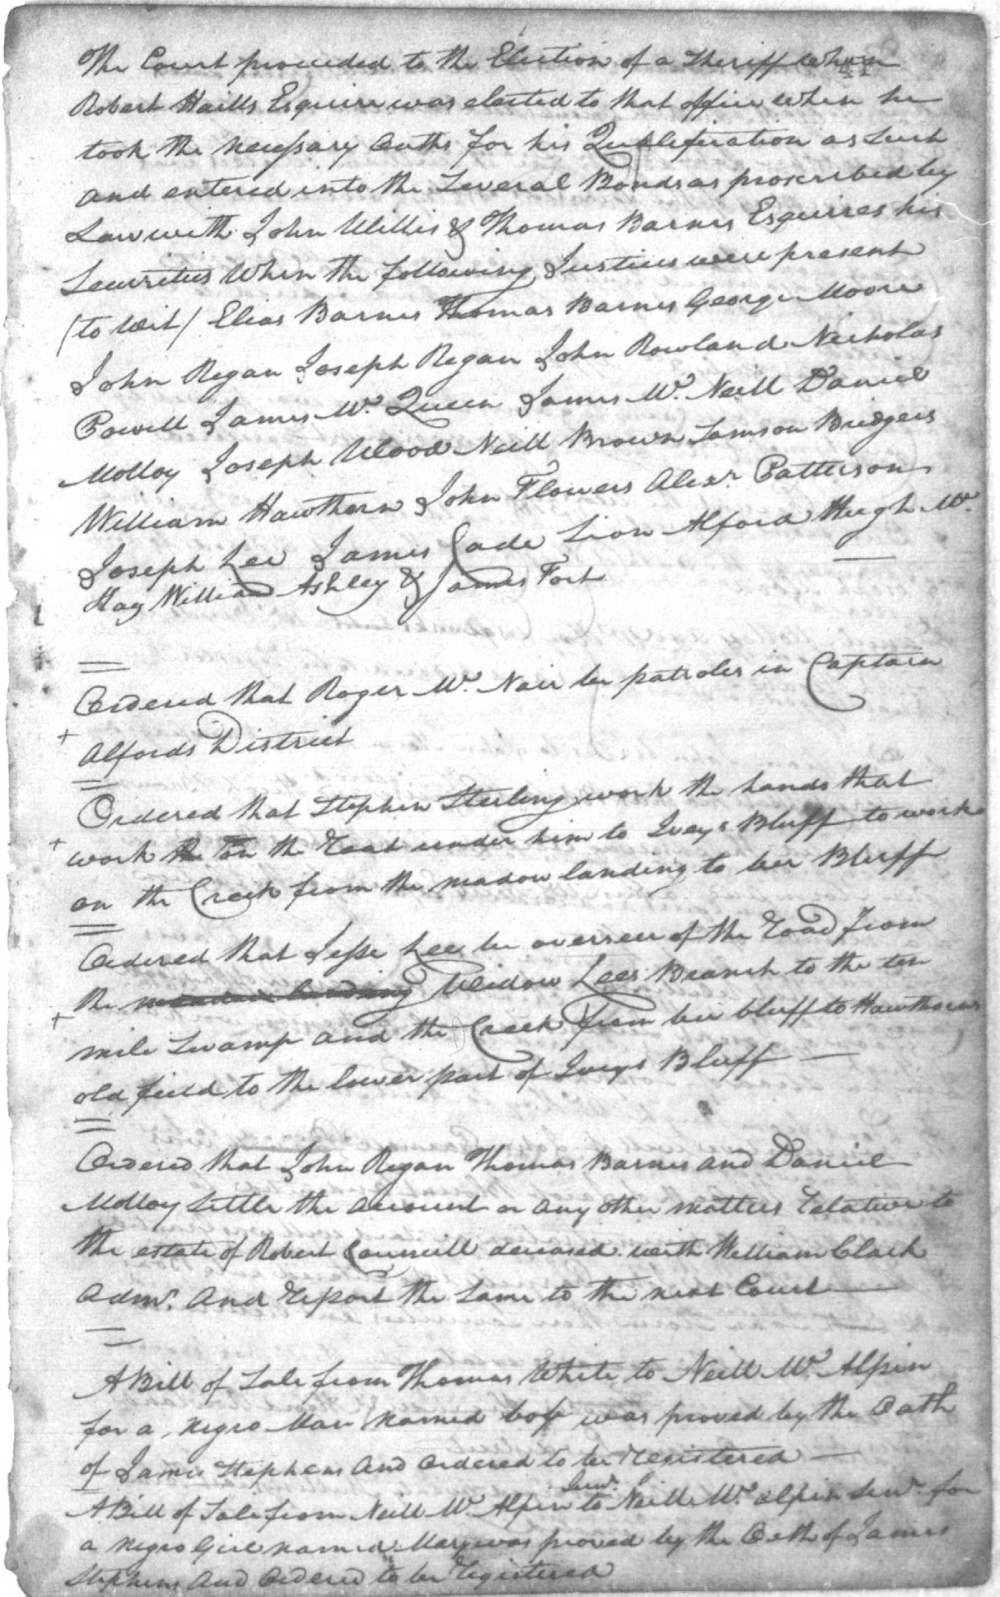 The Court proceeded to the Election of a Sheriff When
Robert Haills Esquire was elected to that office when he
took the necessary Oaths for his Qualification as Such
and entered into the Several Bonds as proscribed by
Law with John Willis & Thomas Barnes Esquires his
Securities When the following Justices were present
(to wit) Elias Barnes Thomas Barnes George Moore
John Regan Joseph Regan John Rowland Nicholas
Powell James Mc. Queen James Mc. Neill Daniel
Molloy Joseph Wood Neill Brown Samson Bridgers
William Hawthorn John Flowers Alexr Patterson
Joseph Lee James Cade Sion Alford Hugh Mc.
Kay William Ashley & James Fort
Ordered that Roger Mc. Nair be patroler in Captain
Alfords District
Ordered that Stephen Sterling work the hands that
work on the Road under him to Iveys Bluff to work
on the Creek from the meadow landing to bee Bluff
Ordered that Jesse Lee be overseer of the Road from
the meadow landing Widow Lees Branch to the ten
mile Swamp and the Creek from bee bluff to Hawthorns
old field to the lower part of Iveys Bluff
Ordered that John Regan Thomas Barnes and Daniel
Molloy Settle the account or any other matters Relative to
the estate of Robert Council deceased with William Clark
Admr. And Report the Same to the next Court
A Bill of Sale from Thomas White to Neill Mc. Alpin
for a negro Man named boss was proved by the Oath
of James Stephens And Ordered to be Registered
Junr.
A Bill of Sale from Neill Mc. Alpin to Neill Mc. alpin Senr. for
a negro Girl named Mary was proved by the Oath of James
Stephens And Ordered to be Registered